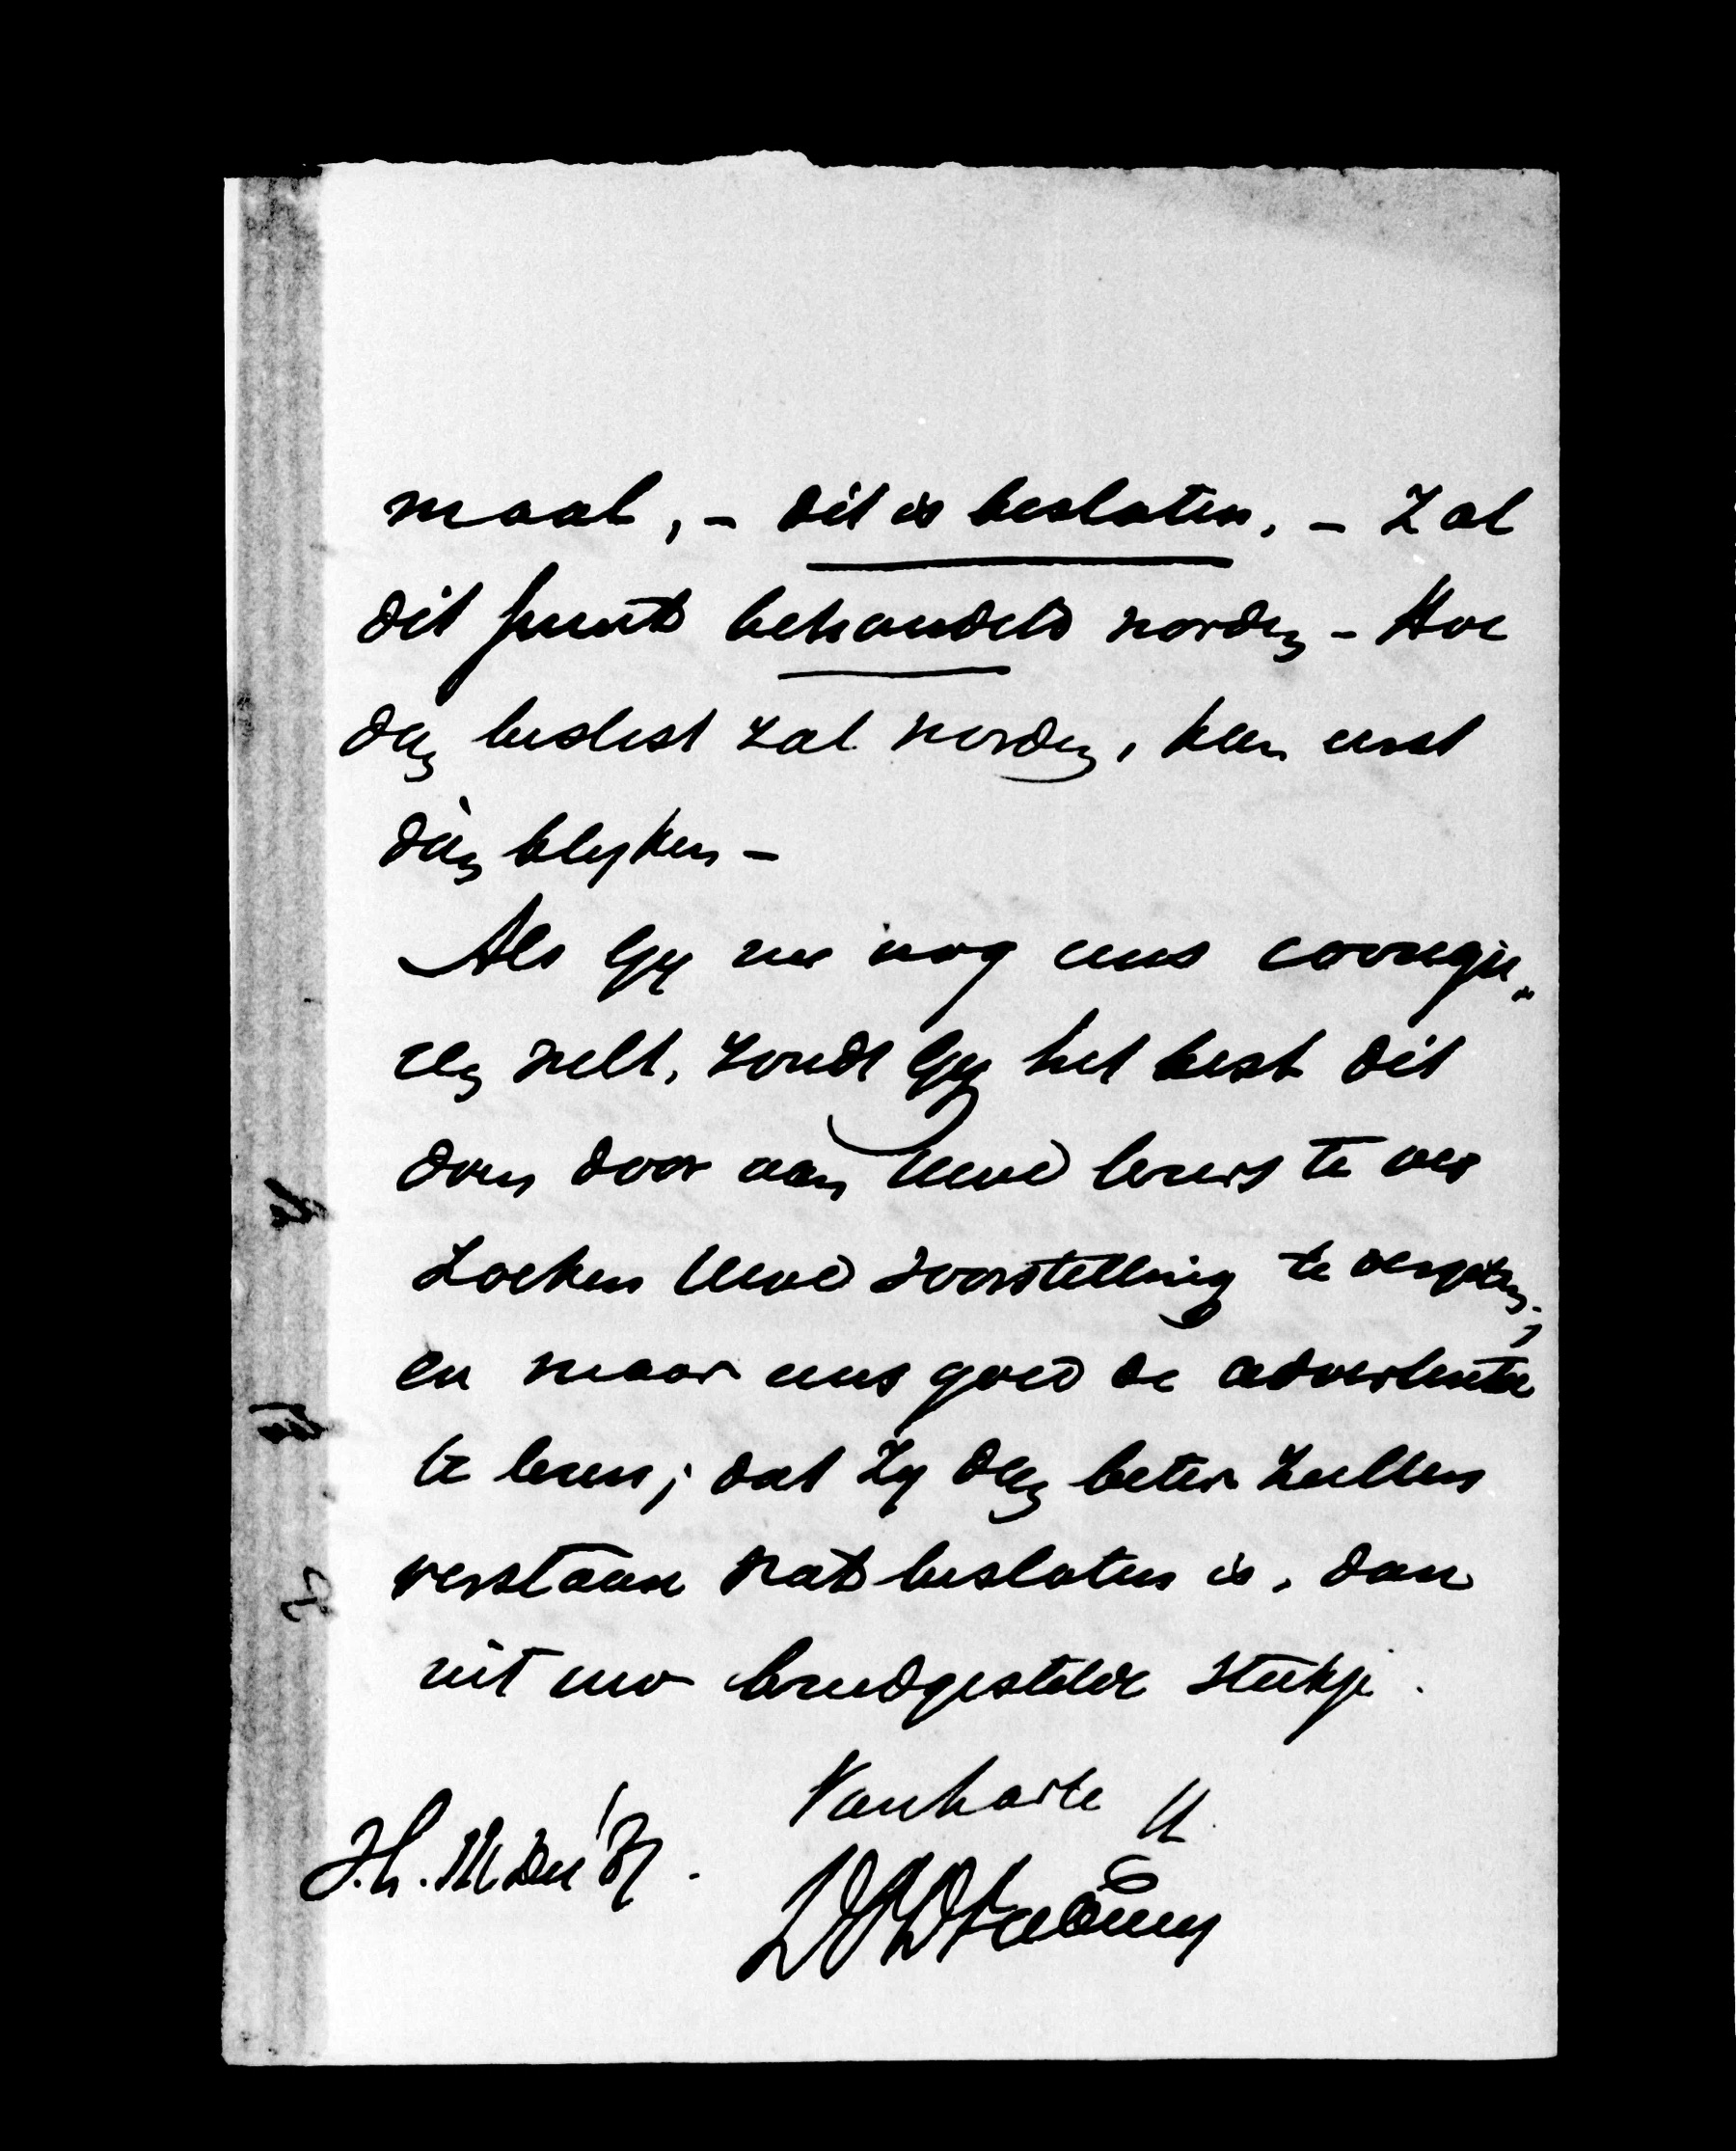 maal, - dit is besloten. - Zal
dit punt behandeld worden - Hoe
dan beslist zal worden, kan eerst
dàn blyken -
Als Gy nu nog eens corrigee„
ren wilt, zoudt Gy het best dit
doen door aan Uwe lezers te ver
zoeken Uwe voorstelling te vergeten;
en maar eens goed de advertentie
te lezen; dat zy dan beter zullen
verstaan wat besloten is, dan
uit uw breedgestelde stukje.
Van harte